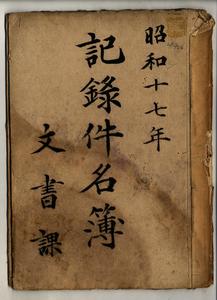 昭和十七年
記錄件名簿
文書課